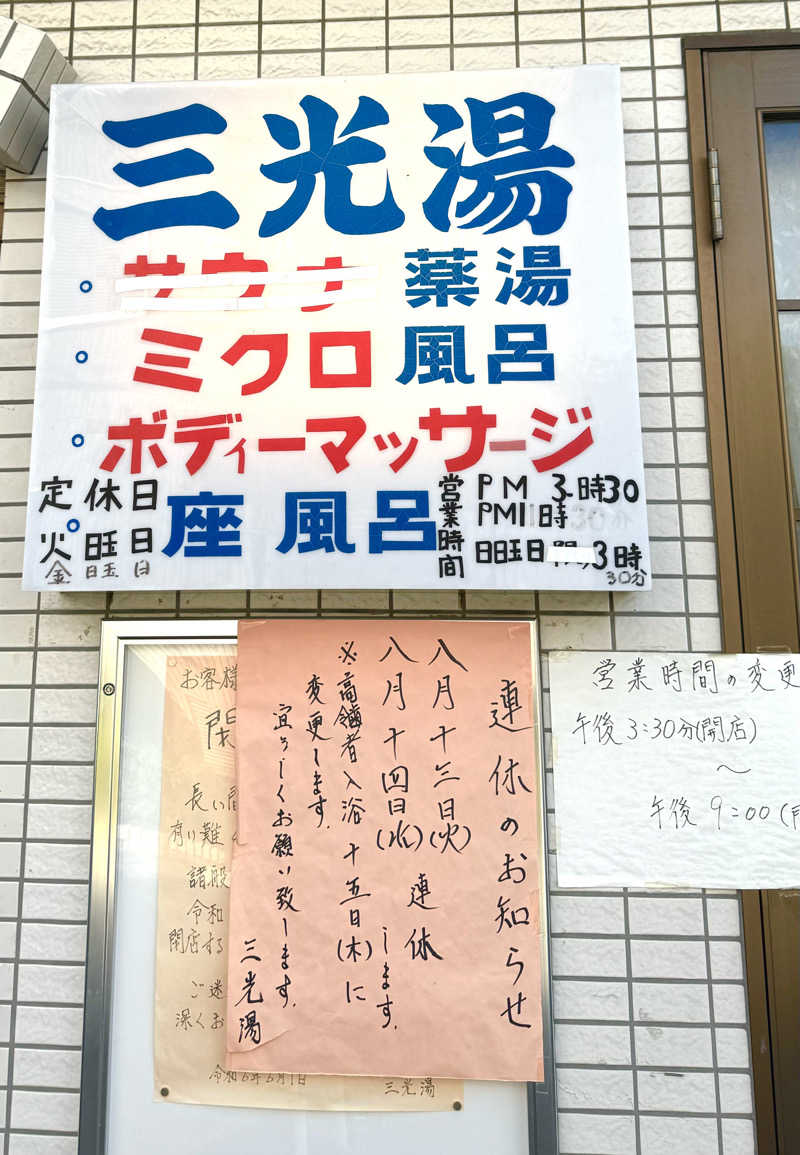 三光湯
サウナ 薬湯
ミクロ 風呂
ボディーマッサージ
座 風呂
定休日
火曜日
金曜日
営業時間
PM 3時30
PM11時
日曜日 3時
30分
連休のお知らせ
八月十三日(火)
八月十四日(水) 連休します.
※高齢者入浴 十五日(木)に
変更します.
宜うしくお願い致します.
三光湯
営業時間の変更
午後 3:30分(開店)
～
午後 9:00(
お客様
長い間
有り難
諸般
令和
閉店する
ご迷
深くお
令和6年6月1日
三光湯